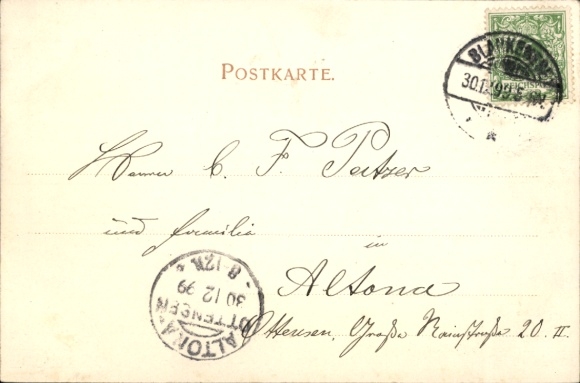 POSTKARTE.
BLANKENESE
30.12.99.
Herrn C. F. Peitzer
und Familie
in
Altona
Ottensen, Große Rainstraße 20. II.
ALTONA
OTTENSEN
30 12 99
8-12N.